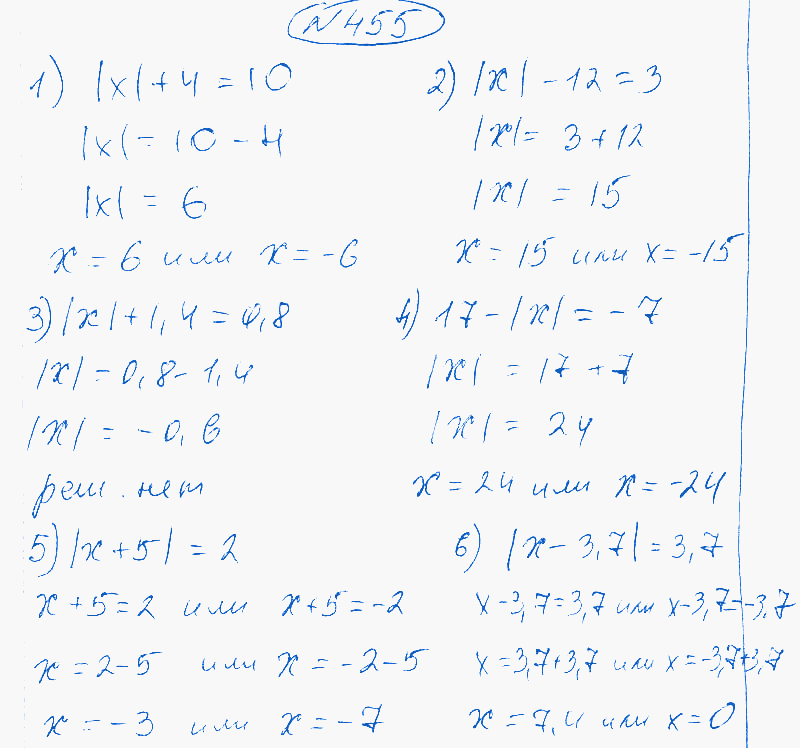 №455
1) |x|+4=10
|x|=10-4
|x|=6
x=6 или x=-6
2) |x|-12=3
|x|=3+12
|x|=15
x=15 или x=-15
3) |x|+1,4=0,8
|x|=0,8-1,4
|x|=-0,6
реш. нет
4) 17-|x|=-7
|x|=17+7
|x|=24
x=24 или x=-24
5) |x+5|=2
x+5=2 или x+5=-2
x=2-5 или x=-2-5
x=-3 или x=-7
6) |x-3,7|=3,7
x-3,7=3,7 или x-3,7=-3,7
x=3,7+3,7 или x=-3,7+3,7
x=7,4 или x=0